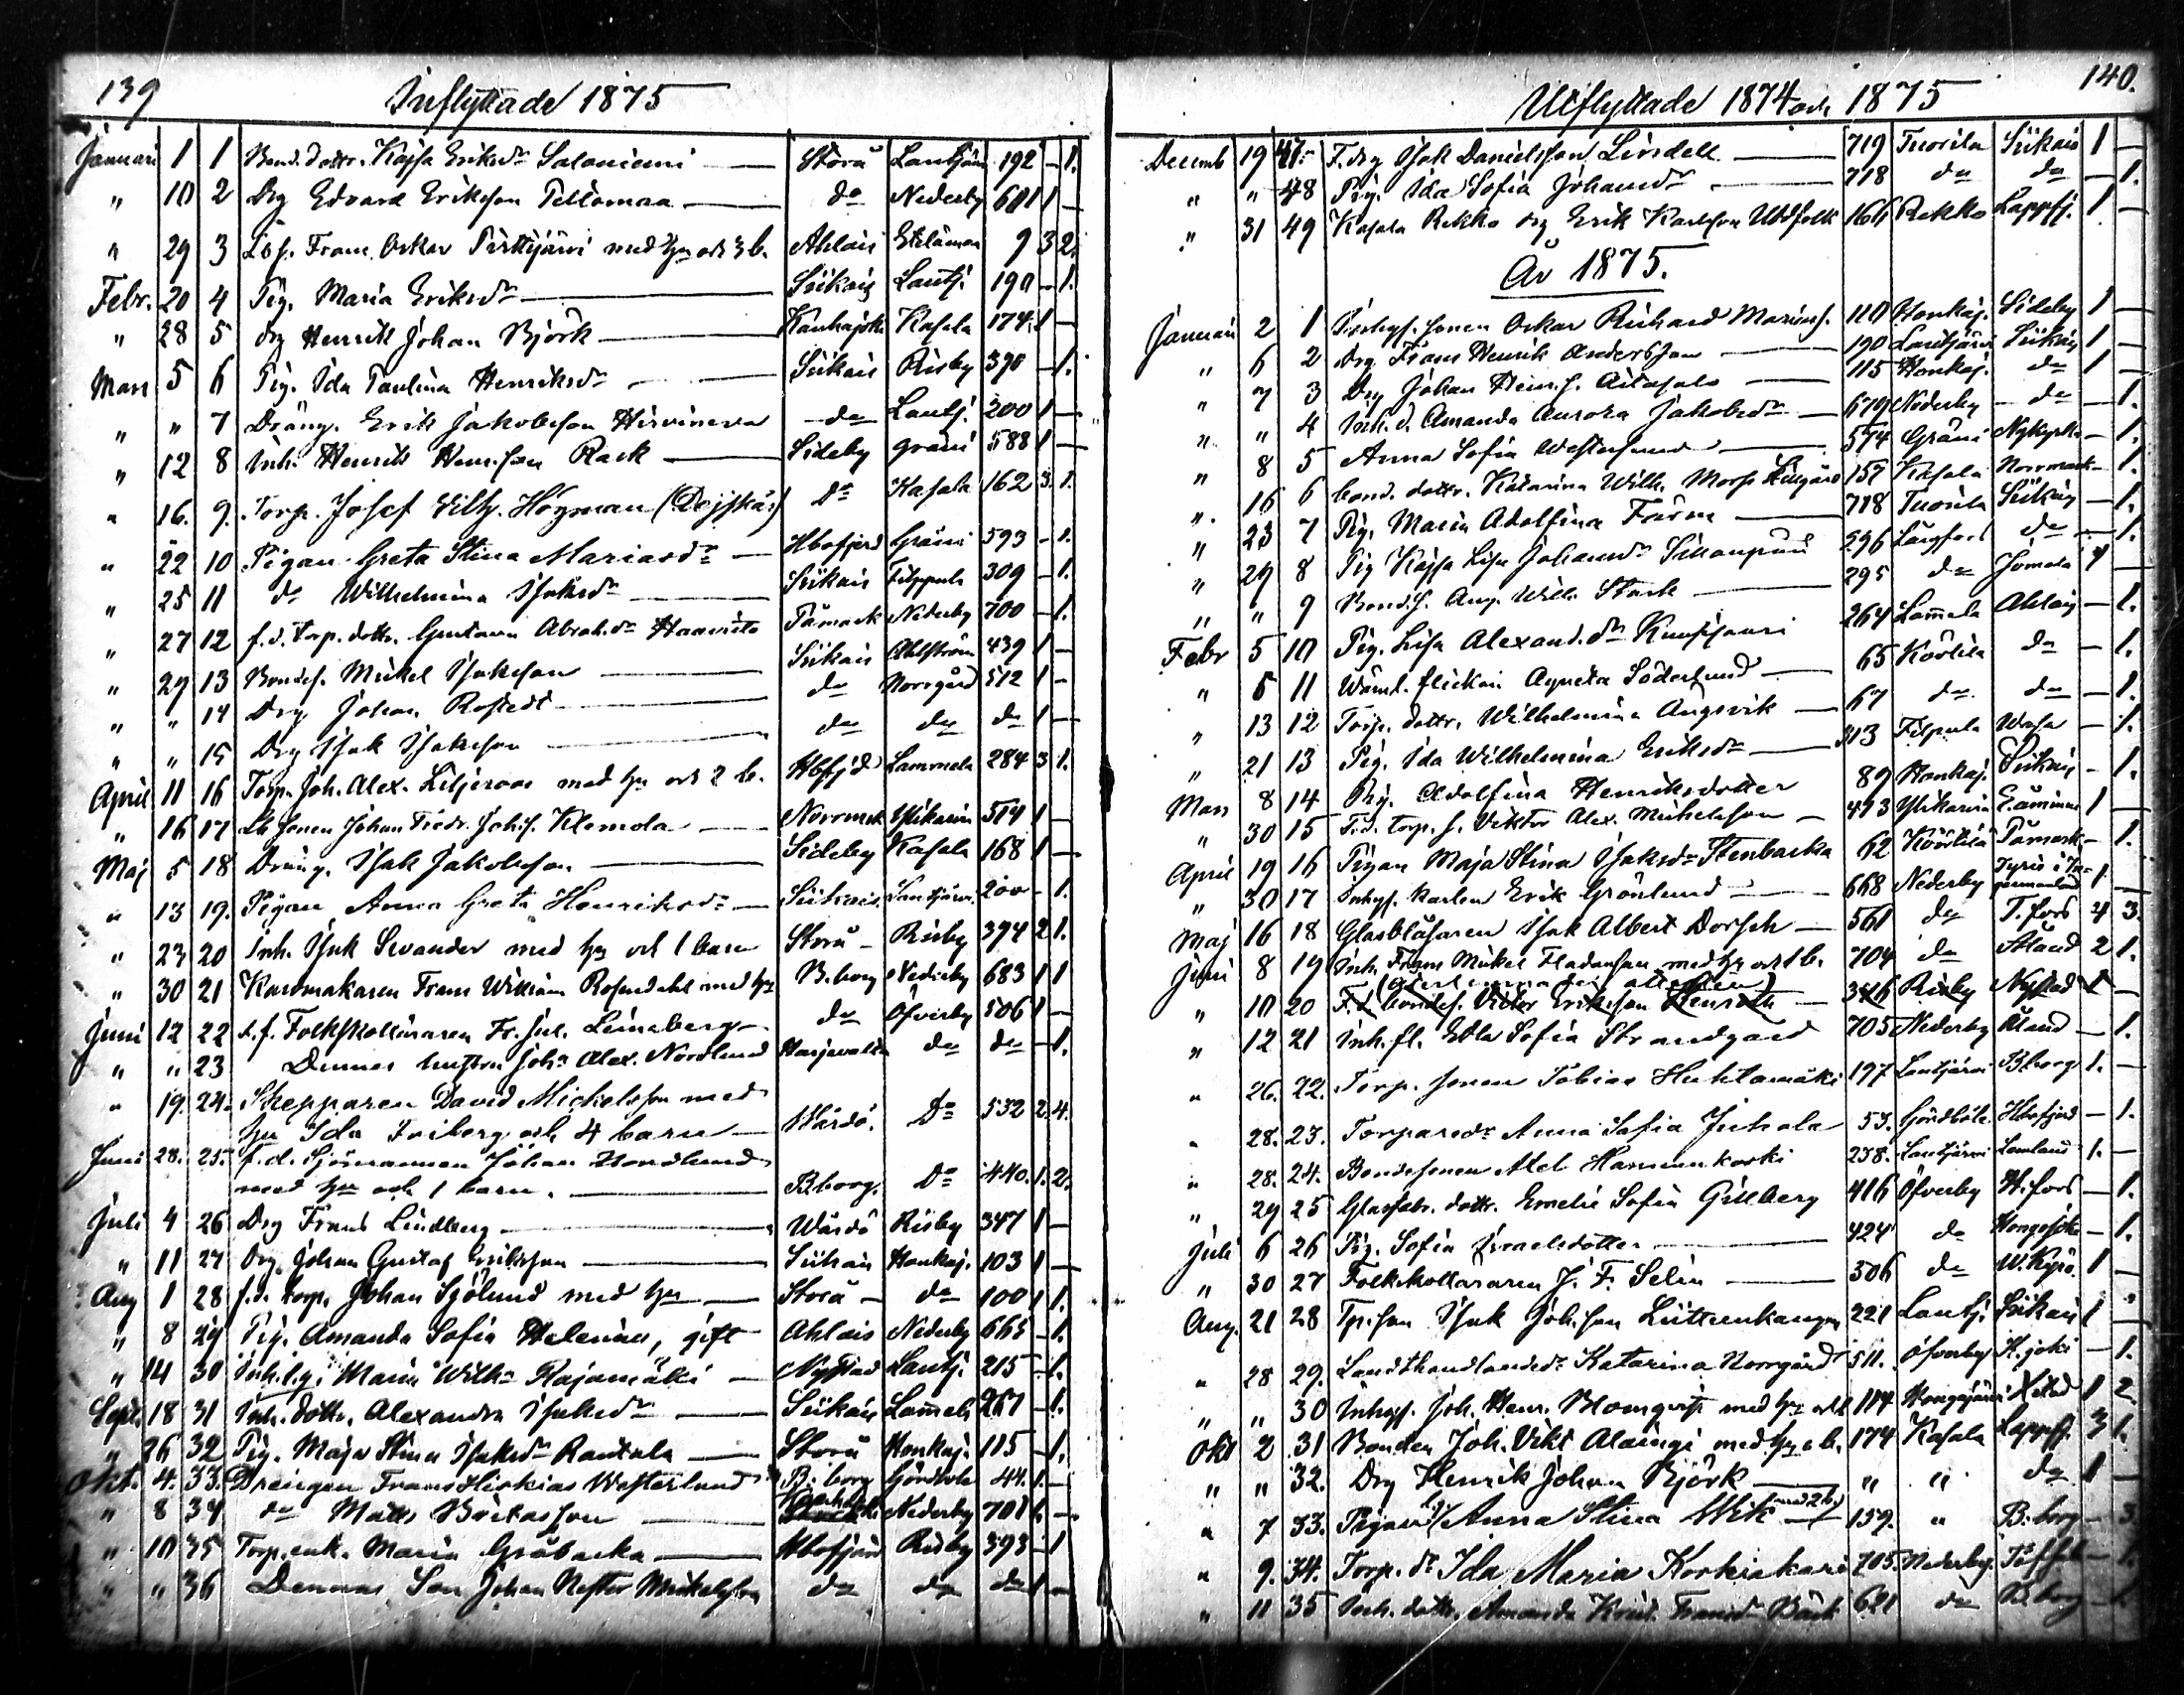 139
Inflyttade 1875
Januari 1 1 Bond. dottr. Kajsa Eriksdr Saloniemi — Storå Lautjärv 192 – 1.
" 10 2 Drg Edvard Eriksson Tellomaa — do Nederby 601 1 –
" 29 3 Frans Oskar Perttijärvi med hu och 3 b. Ahlais 9 3 2.
Febr. 20 4 Pig. Maria Eriksdr — Siikais Lautj. 190 – 1.
" 28 5 drg Henrik Johan Björk — Kauhajoki Kasala 174 1 –
Mars 5 6 Pig. Ida Paulina Henriksdr — Siikais Risby 390 – 1.
" " 7 Dräng. Erik Jakobsson Hirvineva do Lautj. 200 1 –
" 12 8 Inh. Henrik Henr.sson Rask — Sideby Gräsi 588 1 –
" 16. 9. Torp. Josef Vilh. Högman Do Kasala 162 3. 1.
" 22 10 Pigan Greta Stina Mariasdr — Hbofjerd Gräsi 593 – 1.
" 25 11 do Wilhelmina Isaksdr — Siikais Filppula 309 – 1.
" 27 12 f.d. torp. dottr. Gustava Abrah.dr Haavisto Påmark Nederby 700 – 1.
" 29 13 Bondes. Mickel Isaksson — Siikais Ahlström 439 1 –
" " 14 Drg Johan Rostedt — do Norrgård 512 1 –
" " 15 Drg Isak Isaksson — do do do 1 –
April 11 16 Torp. Joh. Alex. Liljeroos med hu och 2 b. Hbofjd Lammela 284 3 1.
" 16 17 Lb sonen Johan Fredr. Joh.s. Klemola — Norrmrk Ylikasvi 514 1 –
Maj 5 18 Dräng. Isak Jakobsson — Sideby Kasala 168 1 –
" 13 19. Pigan Anna Greta Henriksdr — Siikais Lautjärvi 200 – 1.
" 23 20 Inh. Isak Svander med hu och 1 barn Storå – Risby 394 2 1.
" 30 21 Karvmakaren Frans William Rosendahl med hu B.borg Nederby 683 1 1
Juni 12 22 Folkskolläraren Fr. Jul. Leineberg – do Öfverby 506 1 –
" " 23 Dennes hustru Joh: Alex. Nordlund Harjavalta do do – 1.
" 19. 24. Skepparen David Michelsson med
hu Ida Friberg och 4 barn — Wårdö. Do 532 2. 4.
Juni 28. 25. f.d. Sjömannen Johan Nordlund
med hu och 1 barn. — B.borg. Do 440. 1. 2.
Juli 4 26 Drg Frans Lindberg — Wårdö Risby 347 1 –
" 11 27 Drg Johan Gustaf Eriksson — Siikais Honkaj. 103 1 –
Aug 1 28 f.d. torp. Johan Sjölund med hu — Storå – do 100 1 1.
" 8 29 Pig. Amanda Sofia Helenius, gift Ahlais Nederby 665 – 1.
" 14 30 Maria Wilh:a Rajamäki — Nystad Lautj. 215 – 1.
Sept. 18 31 Inh. dottr. Alexandra Isaksdr — Siikais Lamela 267 – 1.
" 26 32 Pig. Maja Stina Isaksdr Rantala — Storå Honkaj. 115 – 1.
Okt. 4. 33. Drengen Frans Hiskias Westerlund B:borg Gördböle 44. 1. –
" 8 34 do Matts Britasson — Nederby 701 1. –
" 10 35 Torp.enk. Maria Gråbacka — Hbofjärd Risby 393 – 1
" " 36 Dennas Son Johan Nestor Mickelsson do do do 1 –
140.
Utflyttade 1874 och 1875
Decemb 19 47 F. drg Isak Danielsson Lindell — 719 Tuorila Siikais 1 –
" " 48 Pig. Ida Sofia Johansdr — 718 do do – 1.
" 31 49 Kasala Rekko drg Erik Karlsson Utsfolk 166 Rekko Lappfj. 1 –
År 1875.
Januari 2 1 Inhys. sonen Oskar Richard Mariæs. 110 Honkaj. Sideby 1 –
" 6 2 Drg Frans Henrik Andersson — 190 Lautjärvi Siikais 1 –
" 7 3 Drg Johan Henr.s. Aitasalo — 115 Honkaj. do 1 –
" " 4 Inh. d. Amanda Aurora Jakobsdr — 679 Nederby do – 1.
" 8 5 Anna Sofia Westerlund — 574 Gräsi Nykyrka – 1.
" 16 6 bond. dottr. Katarina Wilh. Morsp Lillgård 157 Kasala Norrmark – 1.
" 23 7 Pig. Maria Adolfina Färm — 718 Tuorila Siikais – 1.
" 29 8 Pig Kajsa Lisa Johansdr 296 Långfors do – 1.
" " 9 Bond.s. Aug. Wilh. Stark — 295 do Jomala 1 –
Febr 5 10 Pig. Lisa Alexand.dr 264 Lammela Ahlais – 1.
" 5 11 Wärnl. flickan Agneta Söderlund — 65 Kårtila do – 1.
" 13 12 Torp. dottr. Wilhelmina Ängsvik — 67 do do – 1.
" 21 13 Pig. Ida Wilhelmina Eriksdr — 313 Filpula Wasa – 1.
Mars 8 14 Pig. Adolfina Henriksdotter 89 Honkaj. Siikais – 1.
" 30 15 F.d. torp. s. Viktor Alex. Mickelsson – 473 Ylikasvi 1 –
April 19 16 Pigan Maja Stina Isaksdr Stenbacka 62 Kårtila Påmark – 1.
" 30 17 Inhys. karlen Erik Grönlund — 668 Nederby 1 –
Maj 16 18 Glasblåsaren Isak Albert Dorsch — 561 do T.fors 4 3.
Juni 8 19 Inh. Frans Mickel Fladansson med hu och 1 b. 704 do Åland 2 1.
" 10 20 F.d. bondes. Victor Eriksson 346 Risby Nystad 1 –
" 12 21 Inh. fl. Edla Sofia Strandgård 705 Nederby Åland – 1.
" 26. 22. Torp. sonen Tobias Huhtamäki 197 Lautjärvi B:borg 1. –
" 28. 23. Torparedr Anna Sofia Juhola 53. Gördböle Hbofjerd – 1.
" 28. 24. Bondesonen Axel Hannunkoski 238. Lautjärvi Lemland 1. –
" 29 25 Glasfabr. dottr. Emelie Sofia Gillberg 416 Öfverby H.fors – 1.
Juli 6 26 Pig. Sofia Israelsdotter — 424 do – 1.
" 30 27 Folkskolläraren J. F. Selin — 306 do W.Kyrö. 1 –
Aug. 21 28 Tp.son Isak Joh.son 221 Lautj. Siikais 1 –
" 28 29. Landthandlaredr Katarina Norrgård 511. Öfverby K.joki – 1.
" " 30 Inhys. Joh. Henr. Blomqvist med hu och 114 Xstad 1 2
Okt 2 31 Bonden Joh. Vikt Alaingi med hu o b. 174 Kasala Lappfj. 3 1.
" " 32. Drg Henrik Johan Björk — " " do 1 –
" 7 33. Pigan Anna Stina Wik med 2 b. 159. " B:borg – 3.
" 9. 34. Torp. dr Ida Maria Korkiakari 705. Nederby – 1.
" 11 35 Inh. dottr. Amanda Krist. Fransdr Bäck 621 do B.borg – 1.